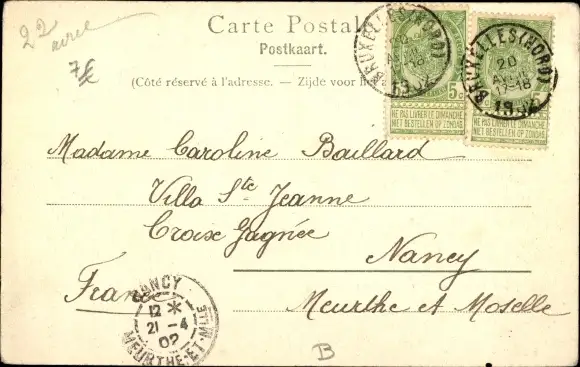 22
7€
Carte Postale
Postkaart.
(Côté réservé à l'adresse. — Zijde voor
BRUXELLES (NORD)
20
1902
5c
NE PAS LIVRER LE DIMANCHE
NIET BESTELLEN OP ZONDAG
BRUXELLES (NORD)
20
17-18
1902
5c
NE PAS LIVRER LE DIMANCHE
NIET BESTELLEN OP ZONDAG
Madame Caroline Baillard
Villa Ste Jeanne
Croix Gagnée
Nancy
France
Meurthe et Moselle
NANCY
12 *
21 -4
02
MEURTHE-ET-MLLE
B